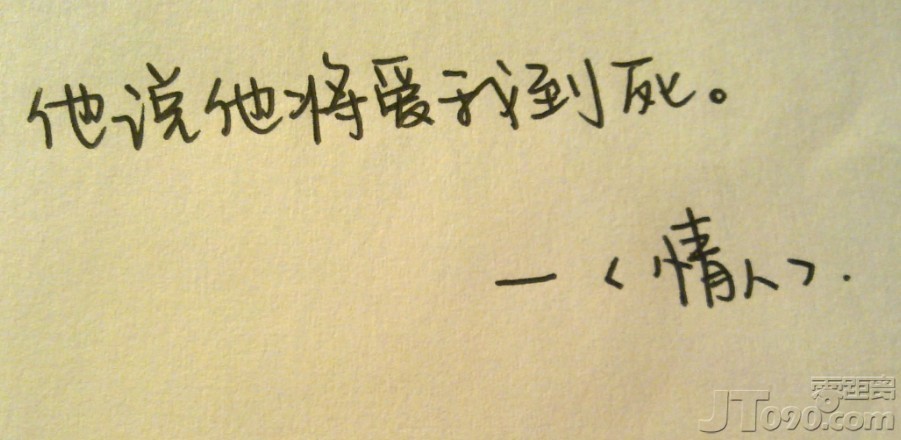 他说他将爱我到死。
—<情人>.
零距离
JT090.com